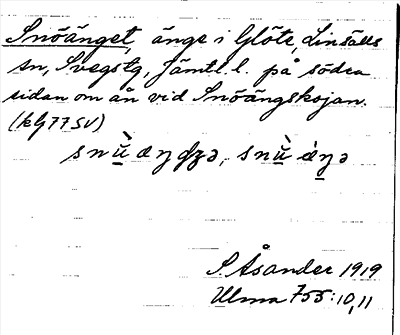 Snöänget, änge i Glöte, Linsälls
sn, Svegstg, Jämtl. l. på södra
sidan om ån vid Snöängskojan.
(kG 77 SV)
snù̠ æŋgʒə, snù̠ æ̀ŋə
S. Åsander 1919
Ulma 755:10,11